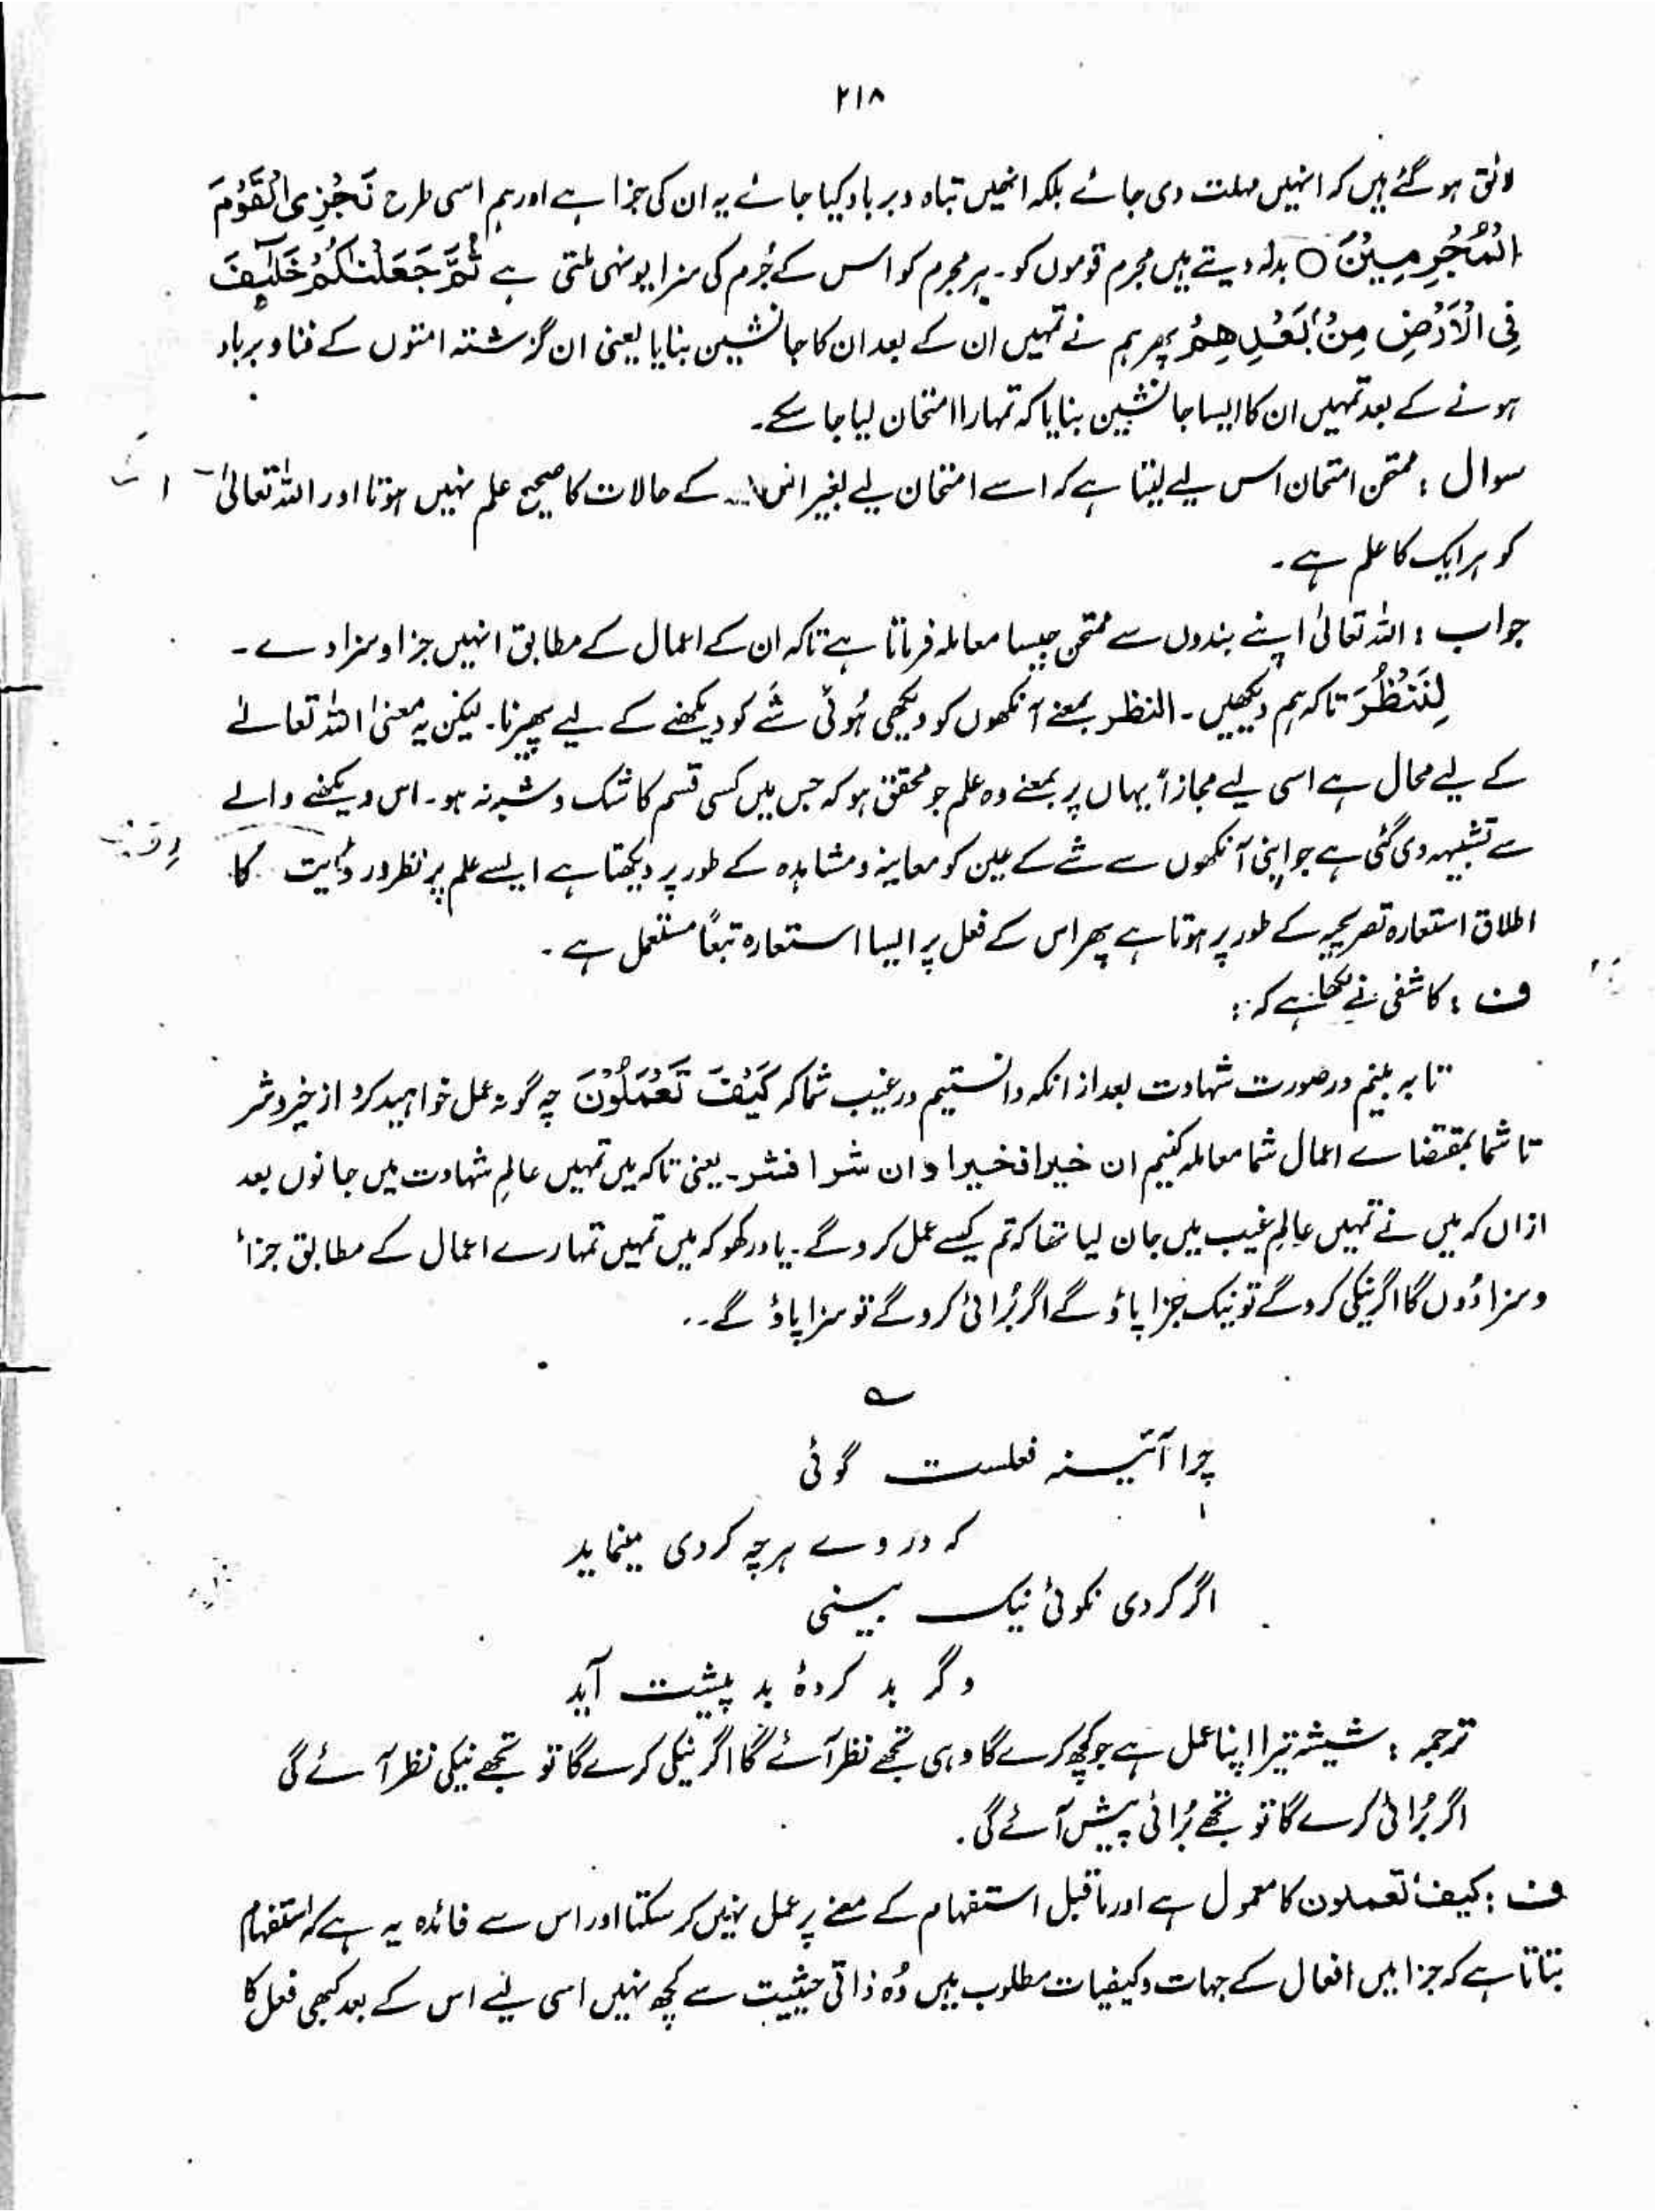 ۲۱۸
لائق ہو گئے ہیں کہ انہیں مہلت دی جائے بلکہ انھیں تباہ و برباد کیا جائے یہ ان کی جزا ہے اور ہم اسی طرح نَجْزِی الْقَوْمَ
الْمُجْرِمِیْنَ ○ بدلہ دیتے ہیں مجرم قوموں کو۔ ہر مجرم کو اس کے جُرم کی سزا یونہی ملتی ہے ثُمَّ جَعَلْنٰکُمْ خَلٰٓئِفَ
فِی الْاَرْضِ مِنْۢ بَعْدِ هِمْ پھر ہم نے تمہیں ان کے بعد ان کا جانشین بنایا یعنی ان گزشتہ امتوں کے فنا و برباد
ہونے کے بعد تمہیں ان کا ایسا جانشین بنایا کہ تمہارا امتحان لیا جا سکے۔
سوال : ممتحن امتحان اس لیے لیتا ہے کہ اسے امتحان لیے بغیر کے حالات کا صحیح علم نہیں ہوتا اور اللہ تعالیٰ
کو ہر ایک کا علم ہے۔
جواب : اللہ تعالیٰ اپنے بندوں سے ممتحن جیسا معاملہ فرماتا ہے تاکہ ان کے اعمال کے مطابق انہیں جزا و سزا دے۔
لِنَنْظُرَ تاکہ ہم دیکھیں۔ النظر بمعنے آنکھوں کو دیکھی ہُوئی شَے کو دیکھنے کے لیے پھیرنا۔ لیکن یہ معنیٰ اللہ تعالےٰ
کے لیے محال ہے اسی لیے مجازاً یہاں پر بمعنے وہ علم جو محقق ہو کہ جس میں کسی قسم کا شک و شبہ نہ ہو۔ اس دیکھنے والے
سے تشبیہہ دی گئی ہے جو اپنی آنکھوں سے شے کے عین کو معاینہ و مشاہدہ کے طور پر دیکھتا ہے ایسے علم پر نظر ور ؤیت کا
اطلاق استعارہ تصریحیہ کے طور پر ہوتا ہے پھر اس کے فعل پر ایسا استعارہ تبعاً مستعمل ہے۔
ف : کاشفی نے لکھا ہے کہ :
تا بہ بینم در صورت شہادت بعد از انکہ دانستیم در غیب شما کہ کَیْفَ تَعْمَلُوْنَ چہ گونہ عمل خواہید کرد از خیر و شر
تا شما بمقتضاے اعمال شما معاملہ کنیم ان خیرا فخیرا و ان شرا فشر۔ یعنی تاکہ میں تمہیں عالمِ شہادت میں جانوں بعد
ازاں کہ میں نے تمہیں عالمِ غیب میں جان لیا تھا کہ تم کیسے عمل کرو گے۔ یاد رکھو کہ میں تمہیں تمہارے اعمال کے مطابق جزأ
و سزا دُوں گا اگر نیکی کرو گے تو نیک جزا پاؤ گے اگر بُرائی کرو گے تو سزا پاؤ گے۔۔
؎
چرا آئینہ فعلست گوئی
کہ در وے ہرچہ کردی مینماید
اگر کردی نکوئی نیک بینی
وگر بد کردۂ بد پیشت آید
ترجمہ : شیشہ تیرا اپنا عمل ہے جو کچھ کرے گا وہی تجھے نظر آئے گا اگر نیکی کرے گا تو تجھے نیکی نظر آئے گی
اگر بُرائی کرے گا تو تجھے بُرائی پیش آئے گی۔
ف : کیف تعملون کا معمول ہے اور ماقبل استفہام کے معنے پر عمل نہیں کر سکتا اور اس سے فائدہ یہ ہے کہ استفہام
بتاتا ہے کہ جزا میں افعال کے جہات و کیفیات مطلوب ہیں وُہ ذاتی حیثیت سے کچھ نہیں اسی لیے اس کے بعد کبھی فعل کا